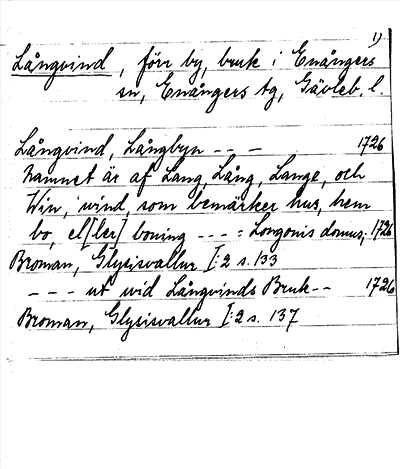 1)
Långvind, förr by, bruk i Enångers
sn, Enångers tg, Gävleb. l.
Långvind, Långbyn - - - 1726
namnet är af Lang, Lång, Lange, och
Win, wind, som bemärker hus, hem
bo, el[ler] boning - - - : Longonis domus; 1726
Broman, Glysisvallur I:2 s. 133
- - - ut wid Långvinds Bruk - - 1726
Broman, Glysisvallur I:2 s. 137